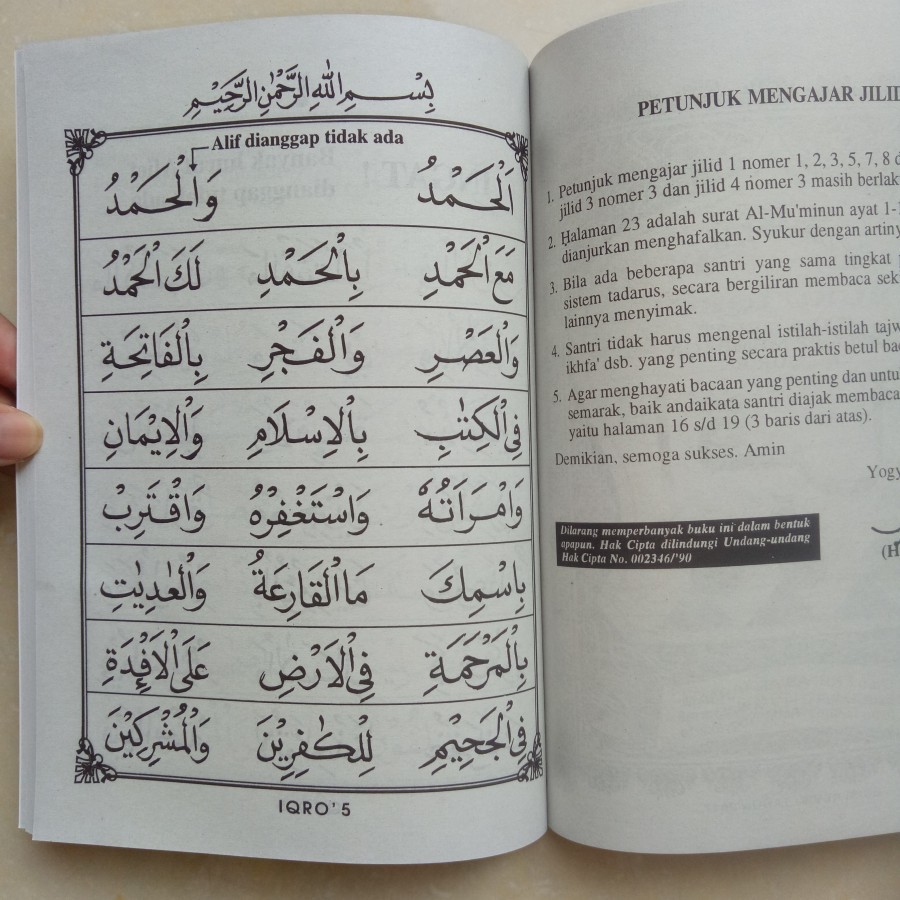 بِسْــمِ اللهِ الرَّحْمٰنِ الرَّحِيْمِ
Alif dianggap tidak ada
اَلْحَمْدُ وَالْحَمْدُ
مَعَ الْحَمْدِ بِالْحَمْدِ لَكَ الْحَمْدُ
وَالْعَصْرِ وَالْفَجْرِ بِالْفَاتِحَةِ
فِي الْكِتٰبِ بِالْاِسْلَامِ وَالْاِيْمَانِ
وَامْرَاَتُهٗ وَاسْتَغْفِرْهُ وَاقْتَرِبْ
بِاسْمِكَ مَا الْقَارِعَةُ وَالْعٰدِيٰتِ
بِالْمَرْحَمَةِ فِي الْاَرْضِ عَلَى الْاَفْـِٕدَةِ
فِي الْجَحِيْمِ لِلْكٰفِرِيْنَ وَالْمُشْرِكِيْنَ
IQRO' 5
PETUNJUK MENGAJAR JILID
1. Petunjuk mengajar jilid 1 nomer 1, 2, 3, 5, 7, 8 d
jilid 3 nomer 3 dan jilid 4 nomer 3 masih berlak
2. Halaman 23 adalah surat Al-Mu'minun ayat 1-1
dianjurkan menghafalkan. Syukur dengan artiny
3. Bila ada beberapa santri yang sama tingkat
sistem tadarus, secara bergiliran membaca sek
lainnya menyimak.
4. Santri tidak harus mengenal istilah-istilah tajw
ikhfa' dsb. yang penting secara praktis betul bac
5. Agar menghayati bacaan yang penting dan untu
semarak, baik andaikata santri diajak membaca
yaitu halaman 16 s/d 19 (3 baris dari atas).
Demikian, semoga sukses. Amin
Yogy
(H
Dilarang memperbanyak buku ini dalam bentuk
apapun. Hak Cipta dilindungi Undang-undang
Hak Cipta No. 002346/'90